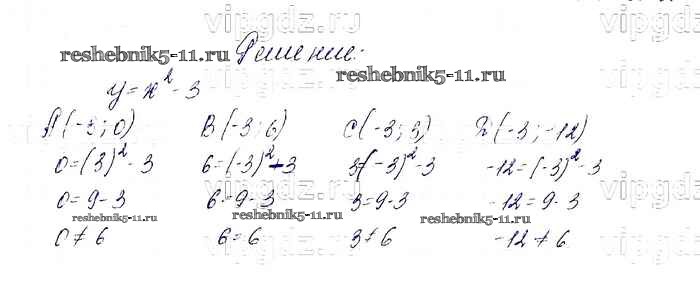 vipgdz.ru vipgdz.ru
Решение:
reshebnik5-11.ru reshebnik5-11.ru
y = x² - 3
A(-3; 0) B(-3; 6) C(-3; 3) D(-3; -12)
0 = (3)² - 3 6 = (-3)² - 3 3 = (-3)² - 3 -12 = (-3)² - 3
0 = 9 - 3 6 = 9 - 3 3 = 9 - 3 -12 = 9 - 3
reshebnik5-11.ru reshebnik5-11.ru reshebnik5-11.ru
0 ≠ 6 6 = 6 3 ≠ 6 -12 ≠ 6
vipgdz.ru vipgdz.ru vipgdz